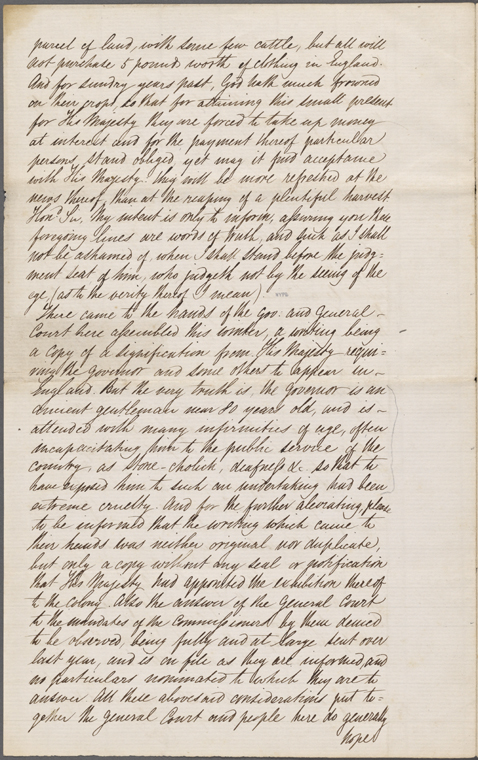 parcel of land, with some few cattle, but all will
not purchase 5 pounds worth of clothing in England.
And for sundry years past, God hath much frowned
on their crops, so that for attaining this small present
for His Majesty they are forced to take up money
at interest and for the payment thereof particular
persons, stand obliged, yet may it find acceptance
with His Majesty. They will be more refreshed at the
news thereof, than at the reaping of a plentiful harvest
Hon'd Sir, My intent is only to inform, assuring you these
foregoing lines are words of truth, and such as I shall
not be ashamed of, when I shall stand before the judg=
ment seat of him, who judgeth not by the seeing of the
eye, (as to the verity thereof I mean).
There came to the hands of the Gov. and General
Court here assembled this a writing being
a Copy of a signification from His Majesty requi=
ring the Governor and some others to appear in
England. But the very truth is, the Governor is an
ancient gentleman near 80 years old, and is
attended with many infirmities of age, often
incapacitating him to the public service of the
country, as stone-cholick, deafness &c so that to
have exposed him to such an undertaking had been
extreme cruelty. And for the further please
to be informed that the writing which came to
their hands was neither original nor duplicate,
but only a copy without any seal or notification
that His Majesty had appointed the exhibition thereof
to the colony. Also the answer of the General Court
to the mandates of the Commissioners by them denied
to be observed, being fully and at large sent over
last year, and is on file as they are informed, and
no particulars nominated to which they are to
answer All these abovesaid considerations put to=
gether the General Court and people here do generally
hope